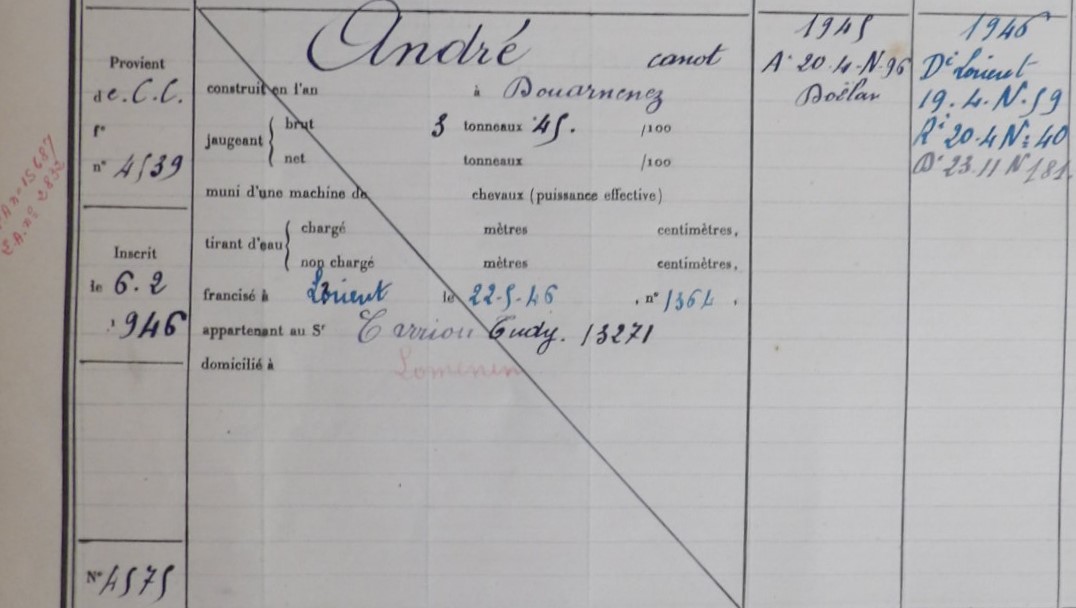 Provient
de C.C.
f°
n° 4539
Inscrit
le 6.2
1946
N° 4575
André canot
construit en l'an à Douarnenez
jaugeant
brut 3 tonneaux 45. /100
net tonneaux /100
muni d'une machine de chevaux (puissance effective)
tirant d'eau
chargé mètres centimètres,
non chargé mètres centimètres,
francisé à Lorient le 22-5-46 , n° 1364 ,
appartenant au Sr Carriou Tudy. 13271
domicilié à Lomener
1945
A. 20.4.N.96
Doëlan
1946
Dt Lorient
19.4.N.59
Rt 20.4 N: 40
Dt 23.11 N 181.